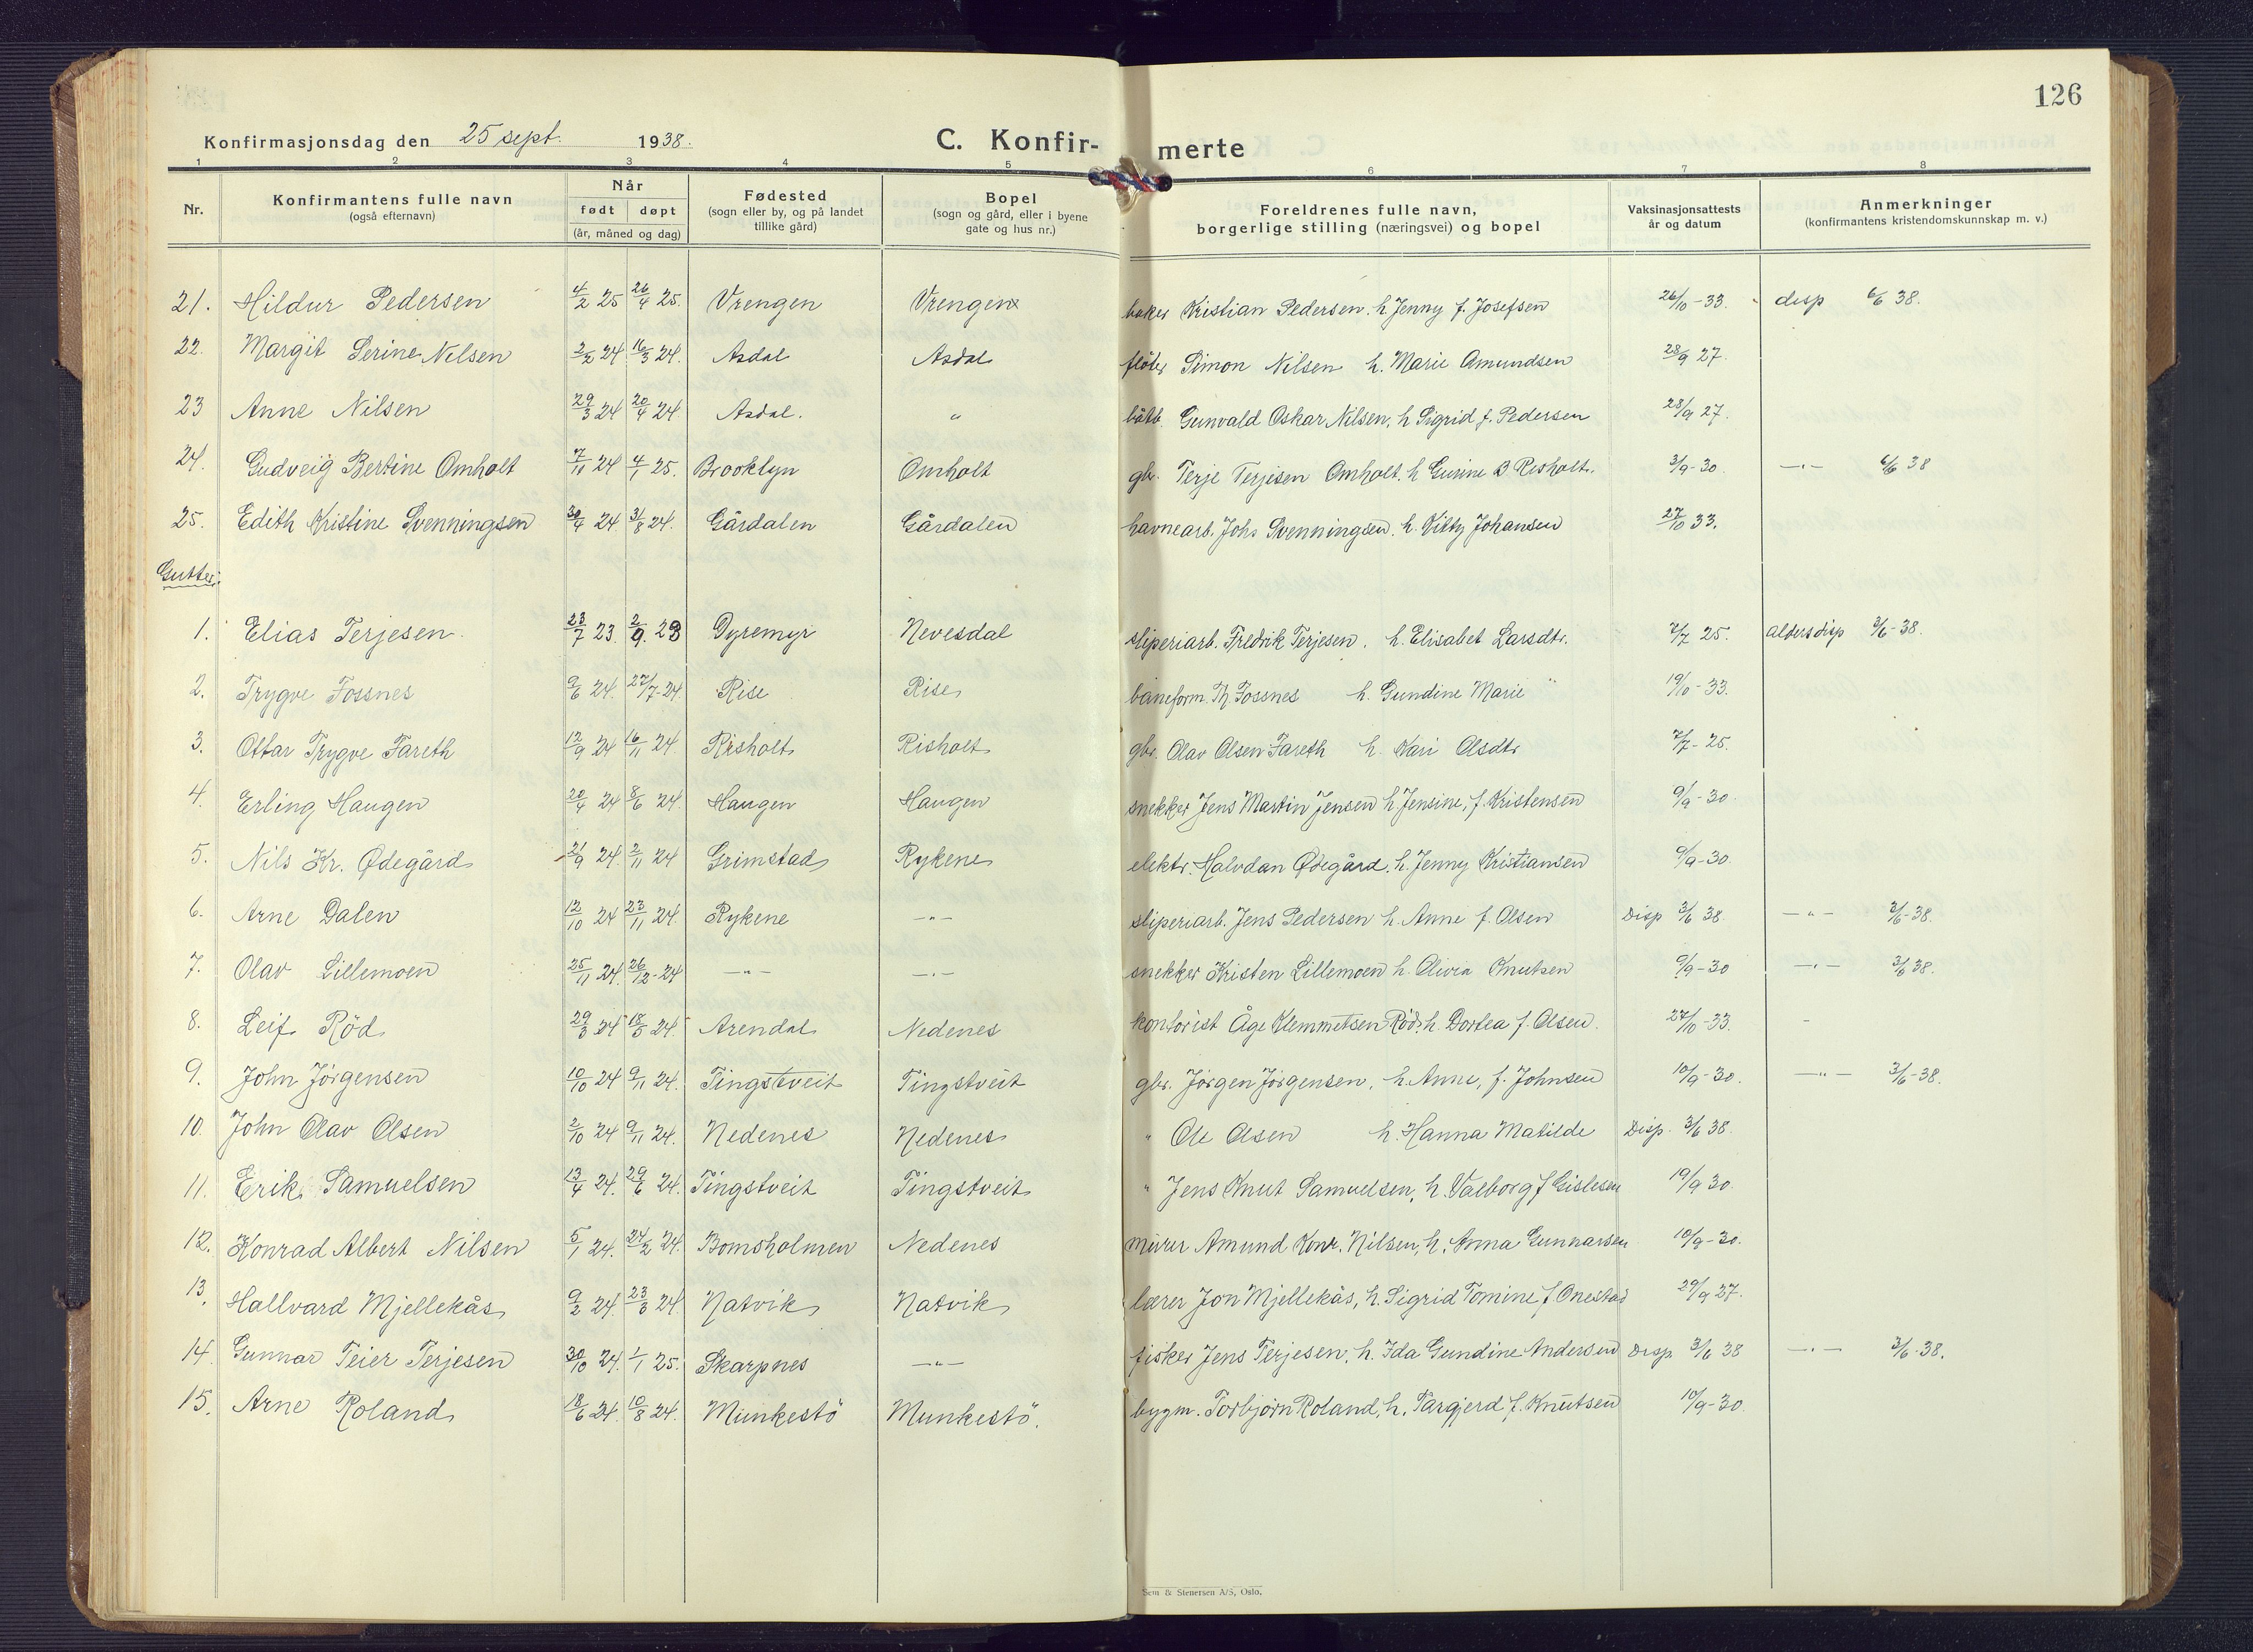 126
Konfirmasjonsdag den 25 sept. 1938.
C. Konfir-merte
1 2 3 4 5 6 7 8
Nr.
Konfirmantens fulle navn
(også efternavn)
Når
født døpt
(år, måned og dag)
Fødested
(sogn eller by, og på landet
tillike gård)
Bopel
(sogn og gård, eller i byene
gate og hus nr.)
Foreldrenes fulle navn,
borgerlige stilling (næringsvei) og bopel
Vaksinasjonsattests
år og datum
Anmerkninger
(konfirmantens kristendomskunnskap m. v.)
21. Hildur Pedersen 4/2 25 26/4 25. Vrengen Vrengen baker Kristian Pedersen. h. Jenny f. Josefsen 26/10-33. disp 6/6 38.
22. Margit Serine Nilsen 2/2 24 16/3 24. Asdal Asdal fløter Simon Nilsen h. Marie Amundsen 28/9 27.
23 Anne Nilsen 29/3 24 20/4 24. Asdal. " båtb. Gunvald Oskar Nilsen, h Sigrid f. Pedersen 28/9 27.
24. Gudveig Bertine Omholt 7/11 24 4/1 25. Brooklyn Omholt gbr. Terje Terjesen Omholt. h Gurine B Risholt. 3/9-30. —"— 6/6 38
25. Edith Kristine Svenningsen 30/4 24 31/8 24. Gårdalen Gårdalen havnearb. Johs Svenningsen. h. Kitty Johansen 27/10 33.
Gutter:
1. Elias Terjesen. 23/7 23. 2/9. 23 Dyremyr Nevesdal sliperiarb. Fredrik Terjesen. h. Elisabet Larsdtr. 7/7 25. aldersdisp 3/6-38.
2. Trygve Fossnes 9/6 24. 27/7-24 Rise Rise baneform. Th. Fossnes h. Gundine Marie " 19/10-33.
3. Ottar Trygve Fareth 12/9 24 16/11 24. Risholt Risholt gbr. Olav Olsen Fareth h. Kari Olsdtr 7/7-25.
4. Erling Haugen 20/4 24 8/6 24. Haugen Haugen snekker Jens Martin Jensen h. Jensine, f. Kristensen 9/9-30.
5. Nils Kr. Ødegård 21/9 24. 2/11 24 Grimstad Rykene elektr. Halvdan Ødegård. h. Jenny Kristiansen 9/9-30.
6. Arne Dalen 12/10 24 23/11 24. Rykene —"— sliperiarb. Jens Pedersen h. Anne f. Olsen Disp 3/6 38. —"— 3/6-38.
7. Olav Lillemoen 25/11 24. 26/12-24 —"— —"— snekker Kristen Lillemoen h. Olivia Knutsen 9/9-30 —"— 3/6 38.
8. Leif Röd 29/3 24 18/5 24. Arendal Nedenes kontorist Åge Klemmetsen Röd. h. Dortea f. Olsen. 27/10-33. -
9. John Jörgensen 10/10 24 9/11 24. Tingstveit Tingstveit gbr. Jörgen Jörgensen, h. Anne, f. Johnsen 10/9-30. —"— 3/6-38.
10. John Olav Olsen 2/10 24 9/11 24. Nedenes Nedenes " Ole Olsen h. Hanna Matilde Disp. 3/6 38.
11. Erik Samuelsen 13/4 24. 29/6 24. Tingstveit Tingstveit " Jens Knut Samuelsen, h. Valborg f Gislesen 19/9 30.
12. Konrad Albert Nilsen 5/1 24. 24/2 24. Bomsholmen Nedenes murer Amund Konr. Nilsen, h. Anna Gunnarsen 10/9-30.
13. Hallvard Mjellekås 9/2 24. 23/3 24. Natvik Natvik lærer Jon Mjellekås, h. Sigrid Tomine f Onestad 29/9 27.
14. Gunnar Teier Terjesen 30/10 24. 1/1 25. Skarpnes —"— fisker Jens Terjesen, h. Ida Gundine Andersen Disp 3/6 38 —"— 3/6-38.
15. Arne Roland 18/6 24. 10/8 24. Munkestö Munkestö. bygm. Torbjörn Roland, h. Targjerd f. Knutsen 10/9-30.
Sem & Stenersen A/S, Oslo.